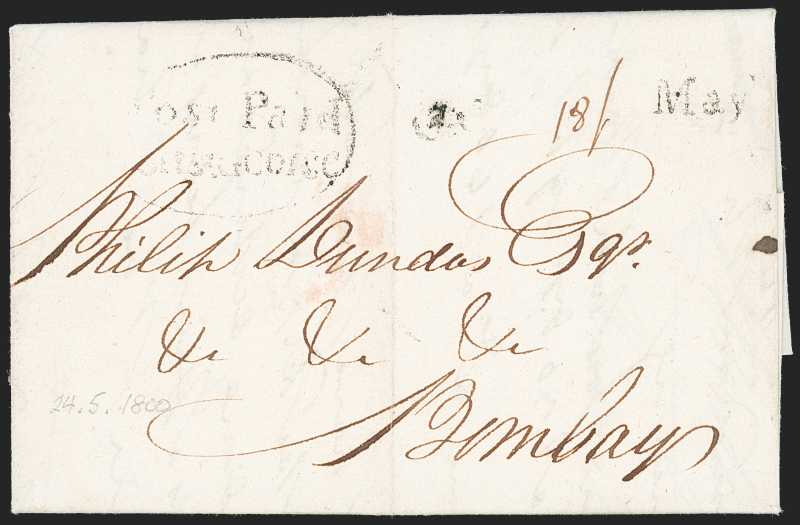 Post Paid
May
18/
Philip Dundas Esqr.
&c &c &c
Bombay
24.5.1800